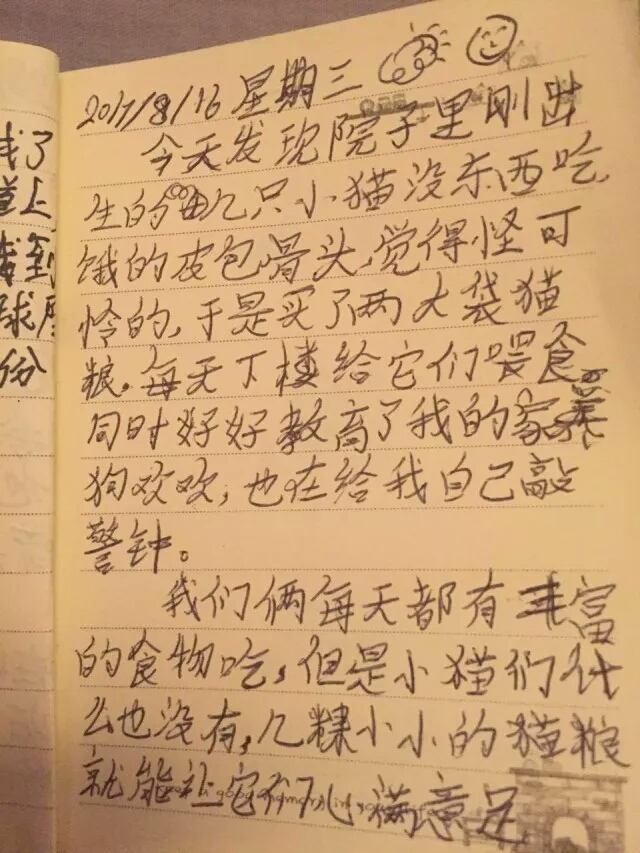 2017/8/16 星期三
今天发现院子里刚出
生的几只小猫没东西吃,
饿的皮包骨头,觉得怪可
怜的,于是买了两大袋猫
粮。每天下楼给它们喂食。
同时好好教育了我的家养
狗欢欢,也在给我自己敲
警钟。
我们俩每天都有丰富
的食物吃,但是小猫们什
么也没有,几粿小小的猫粮
就能让它们心满意足
找了
上
到
球
份